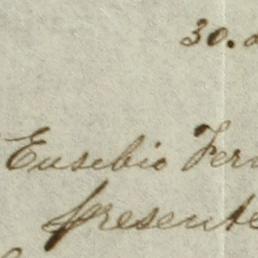 30. d
Eusebio Fern
presente